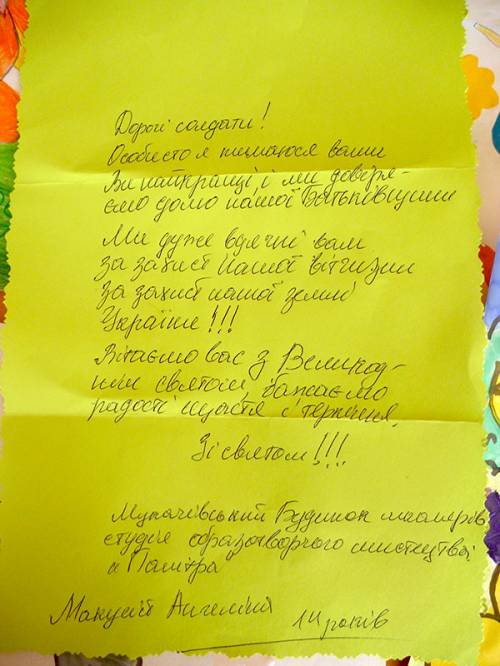 Дорогі солдати!
Особисто я пишаюся вами
Ви найкращі, і ми довіря-
ємо долю нашої Батьківщини
Ми дуже вдячні вам
за захист нашої вітчизни
за захист нашої землі
України!!!
Вітаємо вас з Великод-
нім святом, бажаємо
радості щастя і терпіння.
Зі святом!!!
Мукачівський Будинок школярів
студія образотворчого мистецтва
"Палітра
Ангеліна 14 років